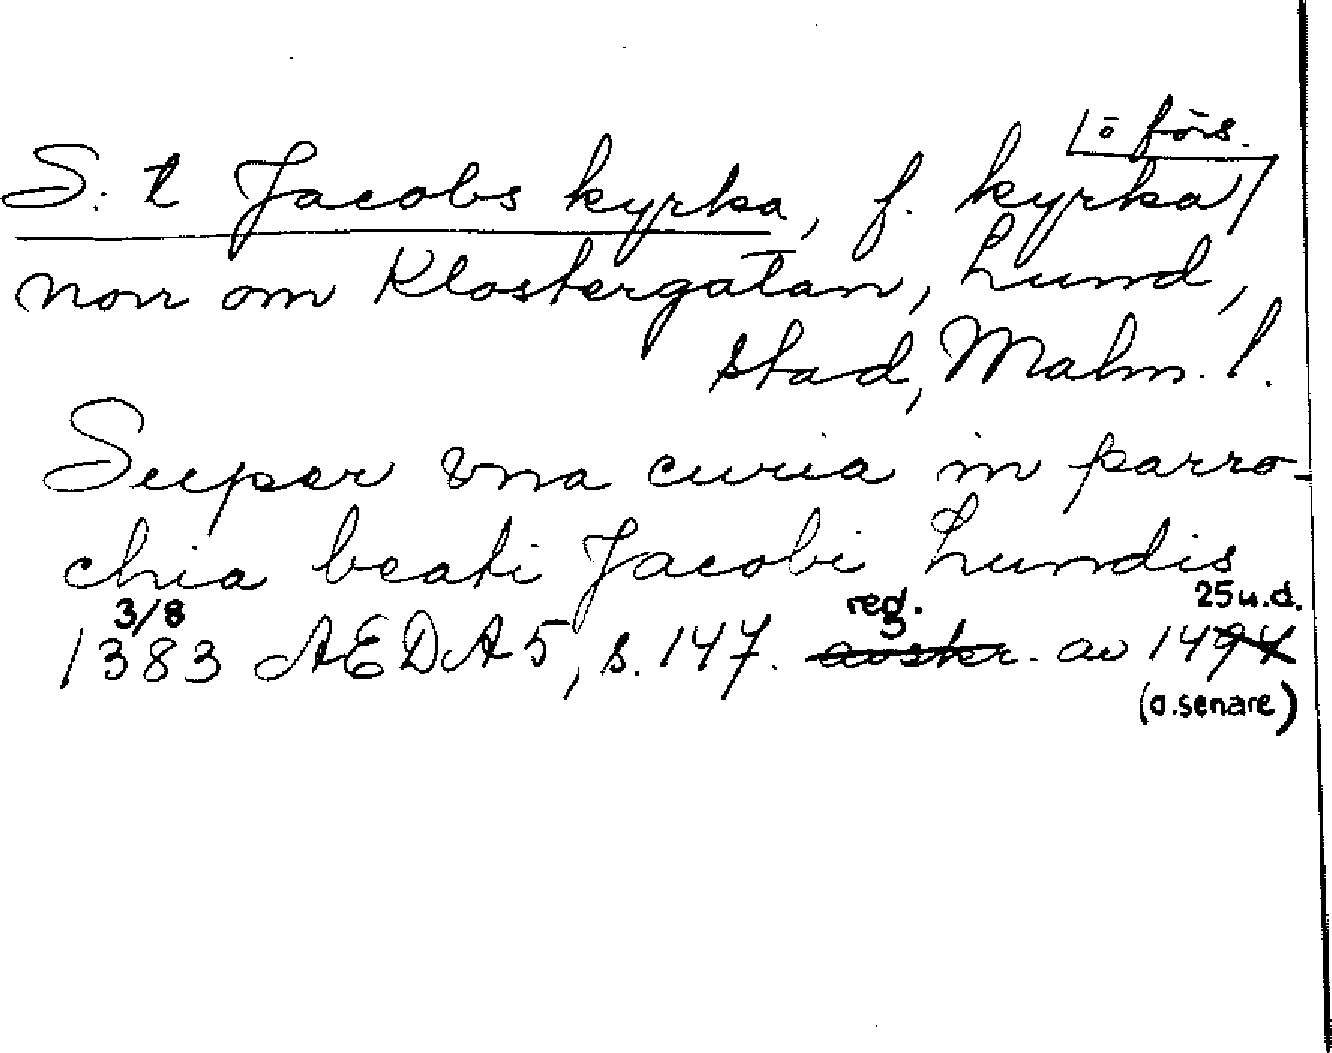 o förs.
S:t Jacobs kyrka, f. kyrka
norr om Klostergatan, Lund,
stad, Malm. l.
Super vna curia in parro-
chia beati Jacobi Lundis
3/8 reg. 25 u.d.
1383 AEDA 5, s. 147. avskr. av 1494
(o. senare)